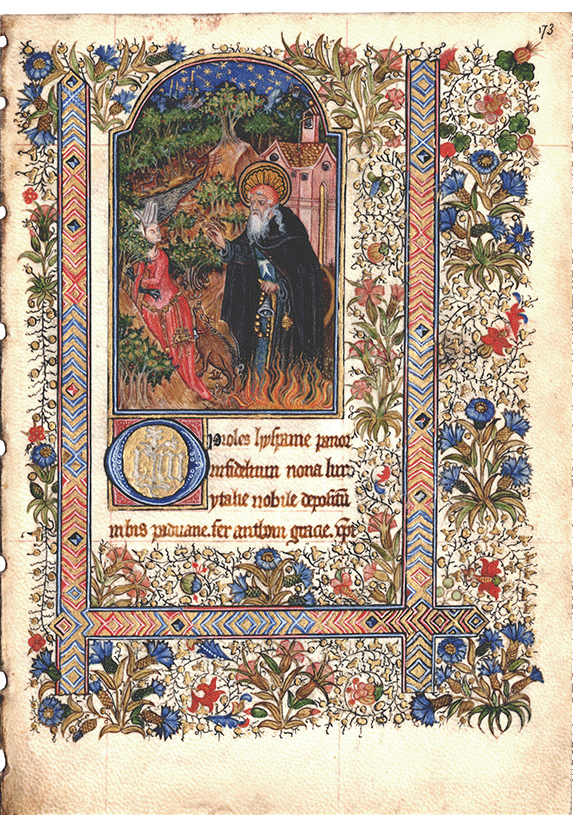 173
O proles hyspanie pauor
infidelium noua lux
ytalie nobile depositū
urbis paduane. fer anthoni gracie. xp̄i